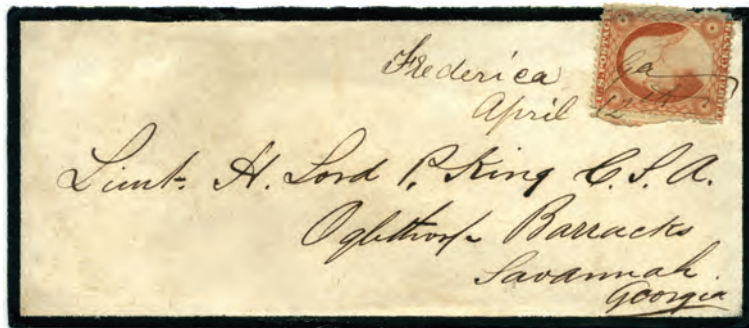 Frederica Ga
April 12th
Lieut. H. Lord P. King C.S.A.
Oglethorpe Barracks
Savannah.
Georgia
U.S. POSTAGE